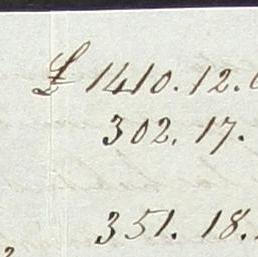 £ 1410.12.
302. 17.
351. 18.